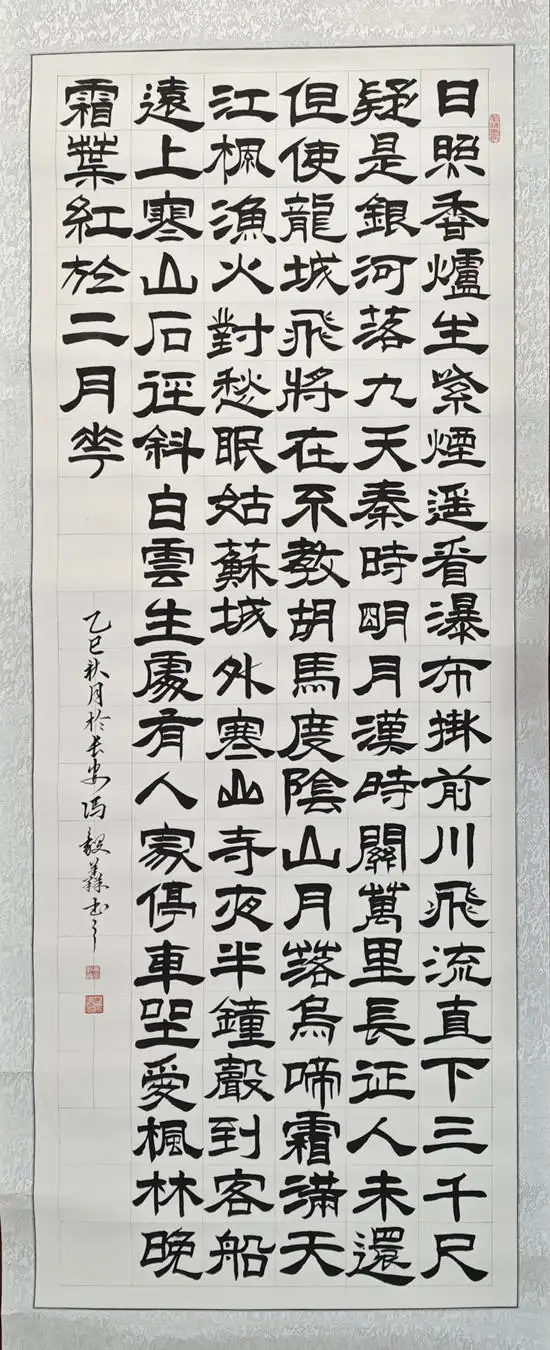 日照香爐生紫煙遥看瀑布掛前川飛流直下三千尺
疑是銀河落九天秦時眀月漢時關萬里長征人未還
但使龍城飛將在不教胡馬度陰山月落烏啼霜滿天
江楓漁火對愁眠姑蘇城外寒山寺夜半鐘聲到客船
遠上寒山石徑斜白雲生處有人家停車坐愛楓林晚
霜葉紅於二月花
乙巳秋月於长安冯毅书之